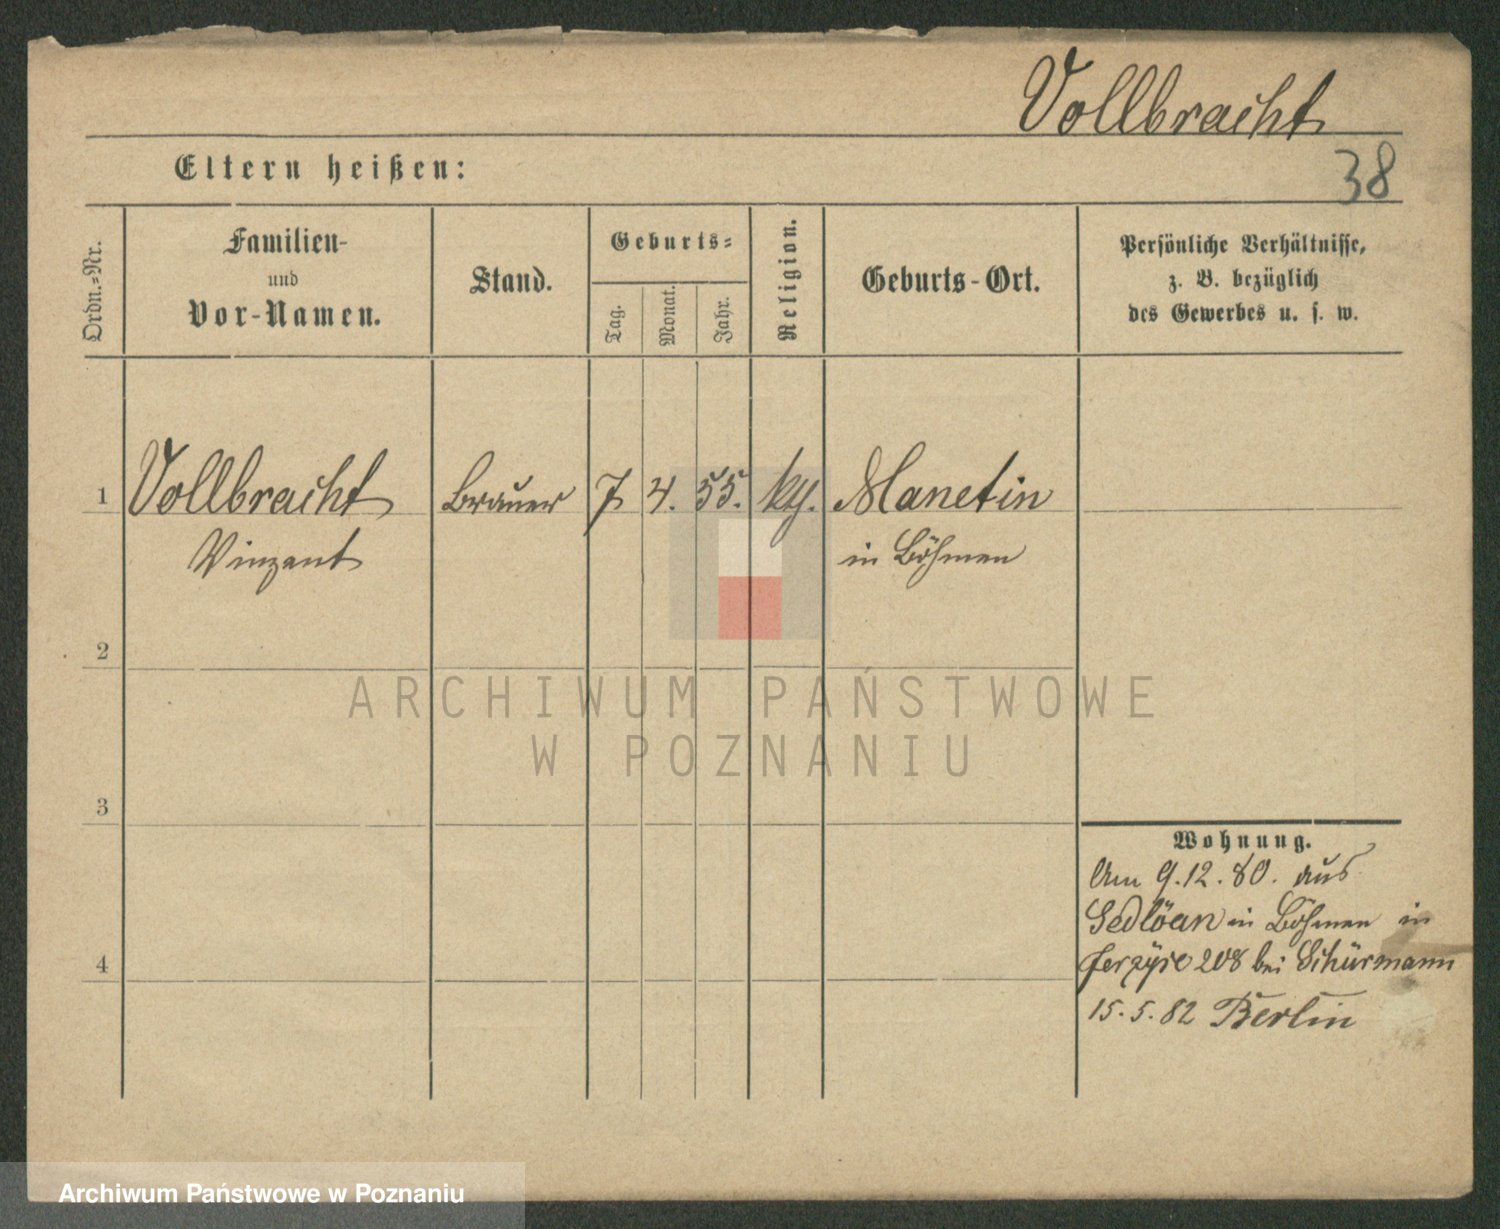 Vollbracht
38
Eltern heißen:
Ordn.=Nr.
Familien-
und
Vor-Namen.
Stand.
Geburts=
Tag.
Monat.
Jahr.
Religion.
Geburts-Ort.
Persönliche Verhältnisse,
z. B. bezüglich
des Gewerbes u. s. w.
1 Vollbracht Brauer 7 4. 55. kth. Manetin
Vinzent in Böhmen
2
ARCHIWUM PAŃSTWOWE
W POZNANIU
3
Wohnung.
Am 9.12.80. aus
in Böhmen in
Jerzyce 208 bei Schürmann
4
15.5.82 Berlin
Archiwum Państwowe w Poznaniu